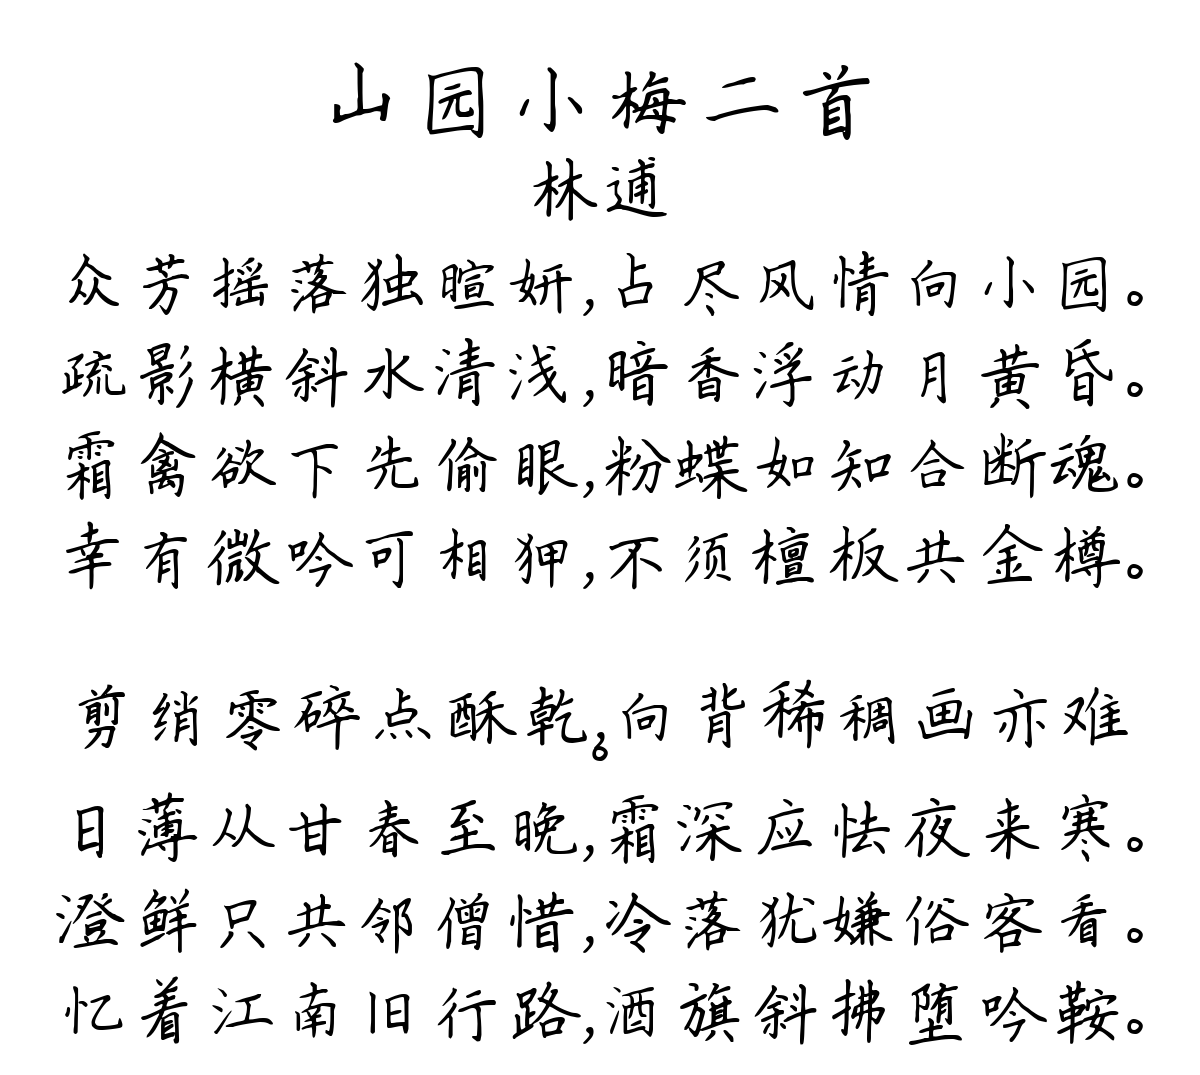 山园小梅二首
林逋
众芳摇落独暄妍,占尽风情向小园。
疏影横斜水清浅,暗香浮动月黄昏。
霜禽欲下先偷眼,粉蝶如知合断魂。
幸有微吟可相狎,不须檀板共金樽。
剪绡零碎点酥乾,。向背稀稠画亦难
日薄从甘春至晚,霜深应怯夜来寒。
澄鲜只共邻僧惜,冷落犹嫌俗客看。
忆着江南旧行路,酒旗斜拂堕吟鞍。